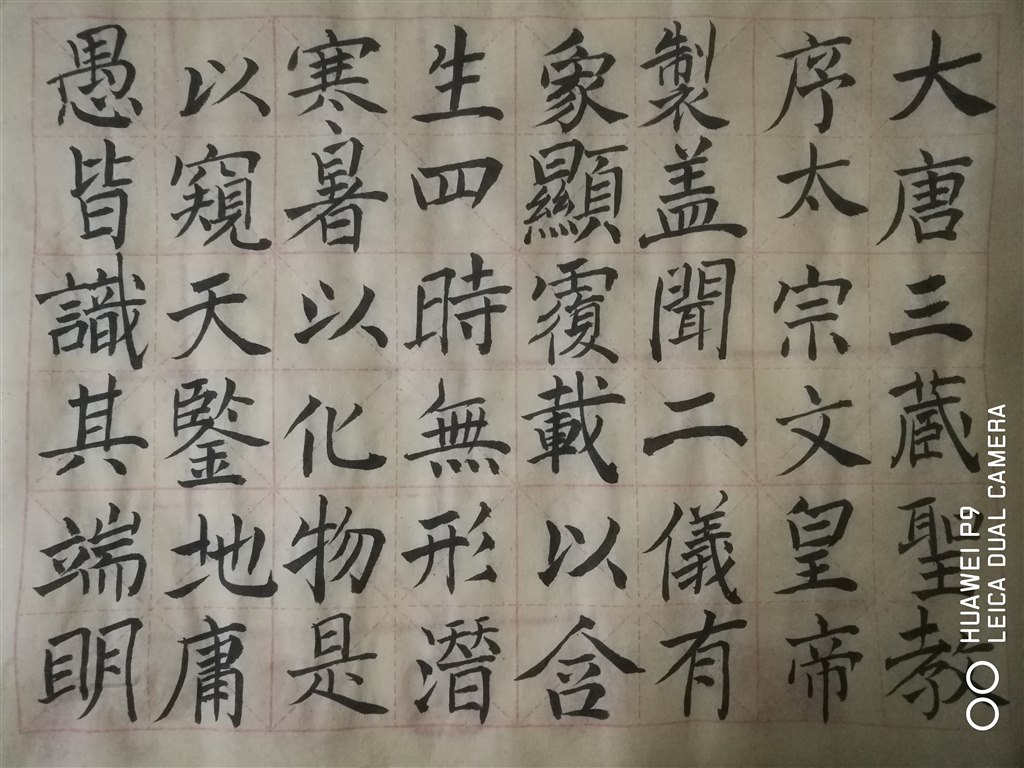 大唐三蔵聖教
序太宗文皇帝
製盖聞二儀有
象顯覆載以含
生四時無形潛
寒暑以化物是
以窺天鑒地庸
愚皆識其端明
HUAWEI P9
LEICA DUAL CAMERA